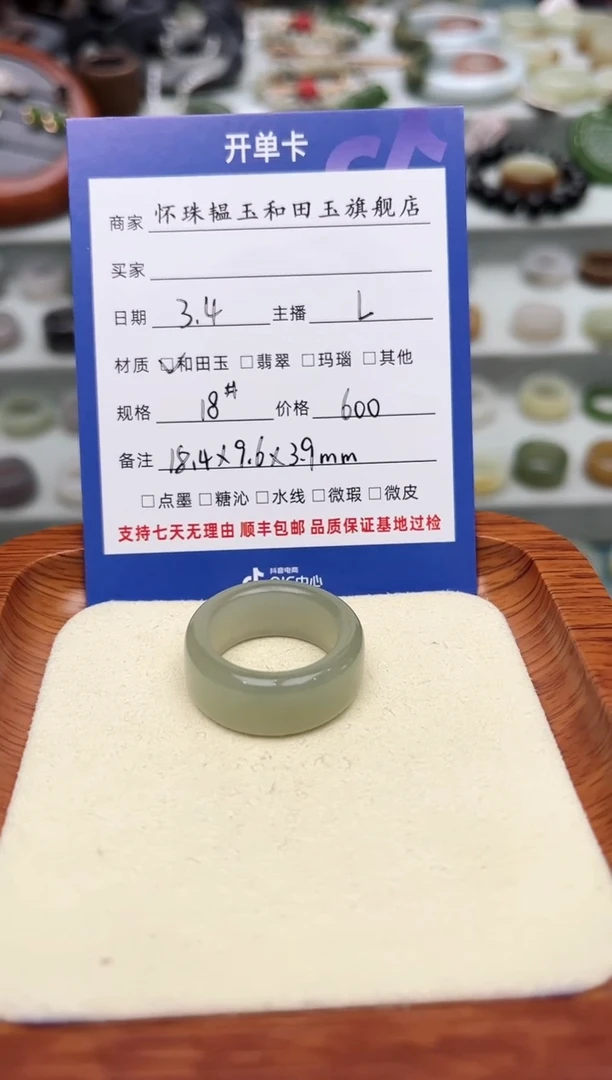 开单卡
商家 怀珠韫玉和田玉旗舰店
买家
日期 3.4 主播 L
材质 ☑和田玉 □翡翠 □玛瑙 □其他
规格 18# 价格 600
备注 18.4×9.6×3.9mm
□点墨 □糖沁 □水线 □微瑕 □微皮
支持七天无理由 顺丰包邮 品质保证基地过检
抖音电商
QIC中心